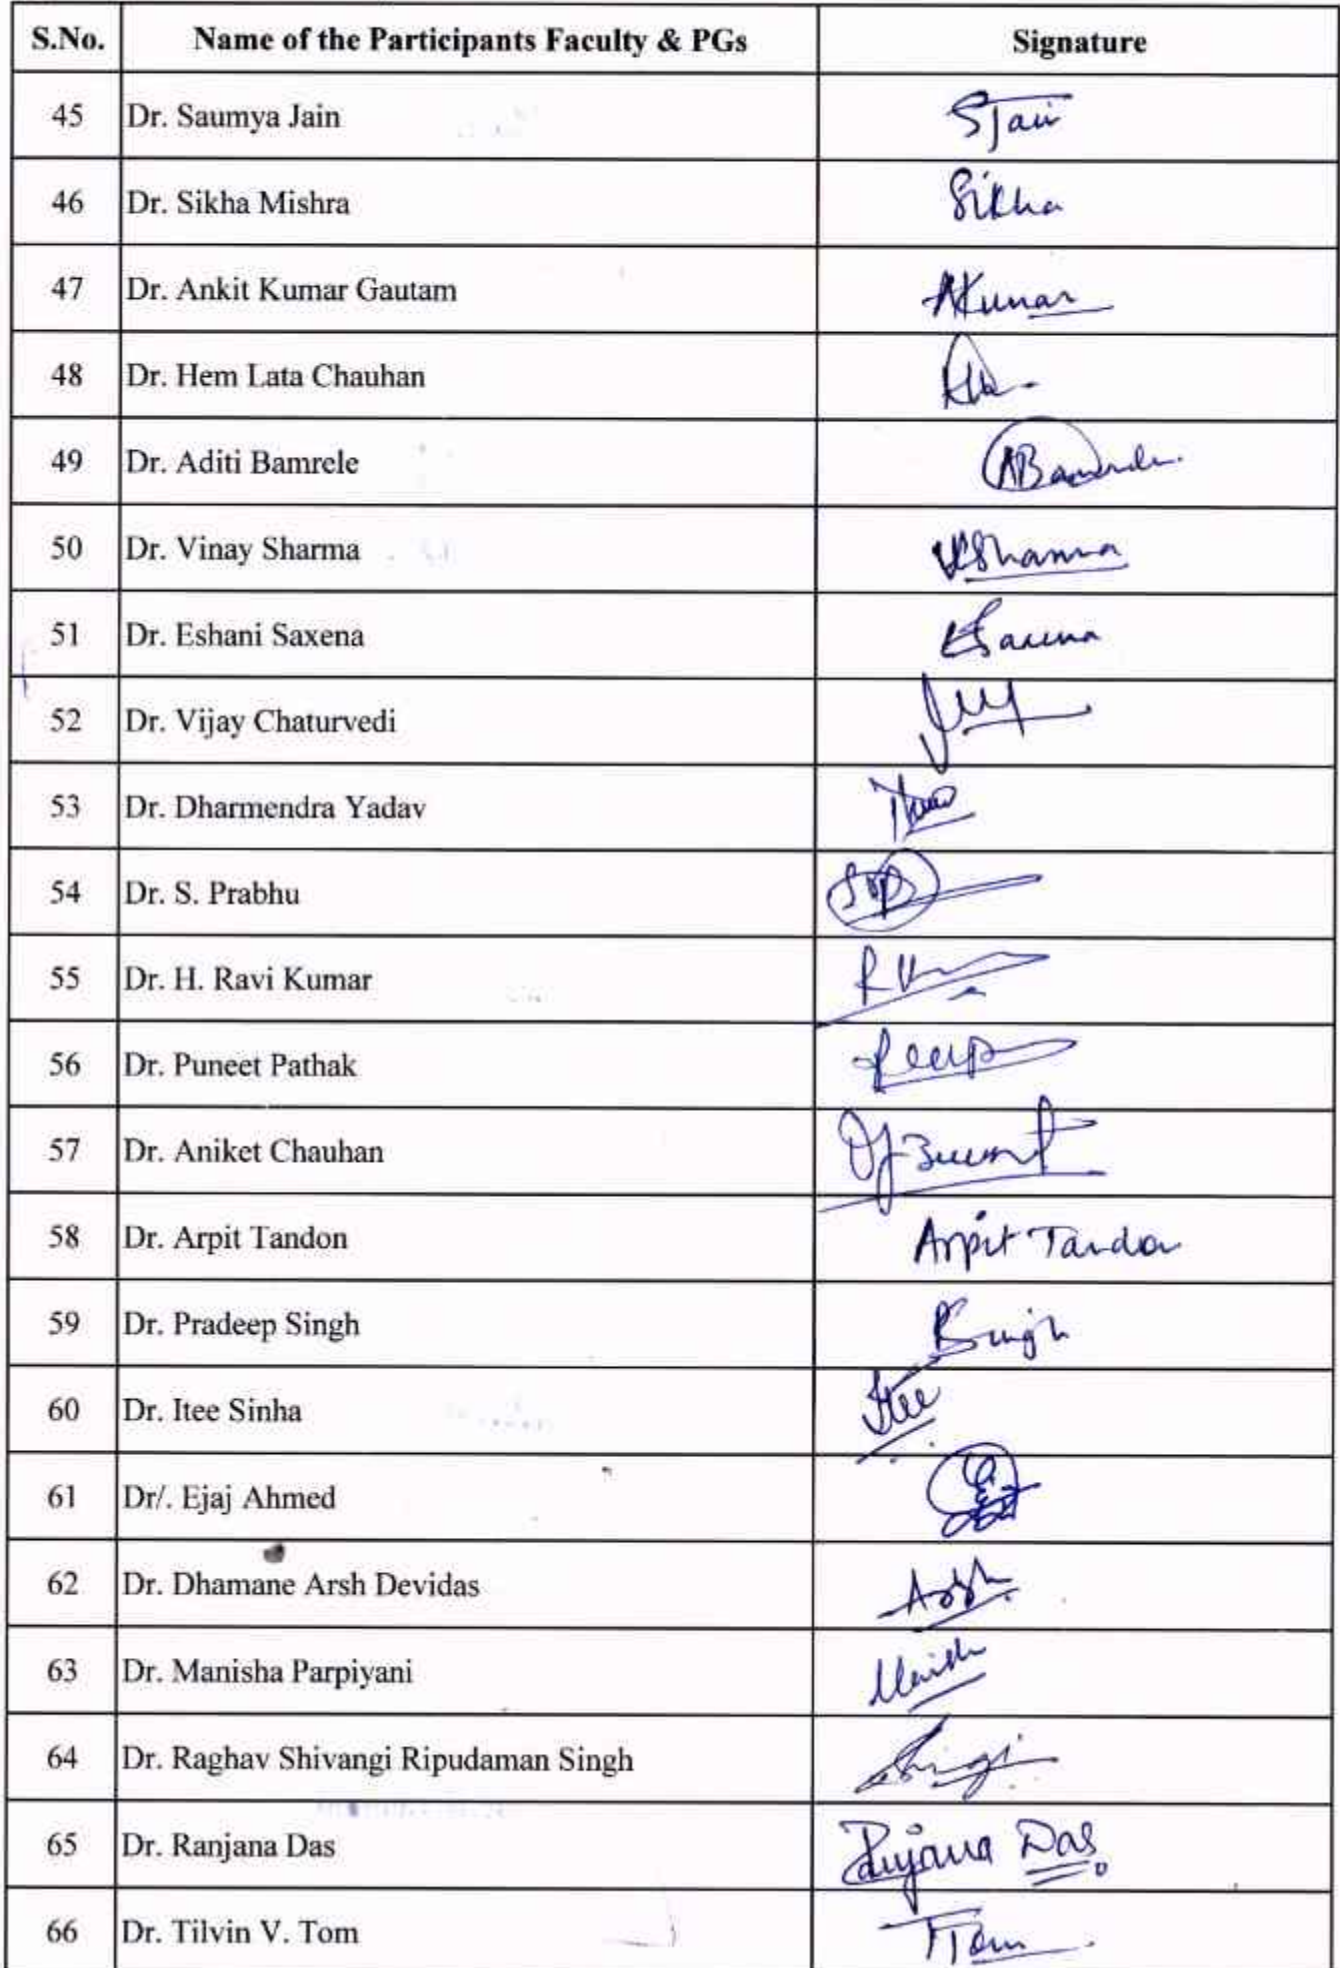 S.No. Name of the Participants Faculty & PGs Signature
45 Dr. Saumya Jain SJain
46 Dr. Sikha Mishra Sikha
47 Dr. Ankit Kumar Gautam AKumar
48 Dr. Hem Lata Chauhan
49 Dr. Aditi Bamrele ABamrele
50 Dr. Vinay Sharma VSharma
51 Dr. Eshani Saxena ESaxena
52 Dr. Vijay Chaturvedi
53 Dr. Dharmendra Yadav
54 Dr. S. Prabhu
55 Dr. H. Ravi Kumar
56 Dr. Puneet Pathak
57 Dr. Aniket Chauhan
58 Dr. Arpit Tandon Arpit Tandon
59 Dr. Pradeep Singh PSingh
60 Dr. Itee Sinha Itee
61 Dr/. Ejaj Ahmed
62 Dr. Dhamane Arsh Devidas Arsh
63 Dr. Manisha Parpiyani
64 Dr. Raghav Shivangi Ripudaman Singh
65 Dr. Ranjana Das Ranjana Das
66 Dr. Tilvin V. Tom TTom